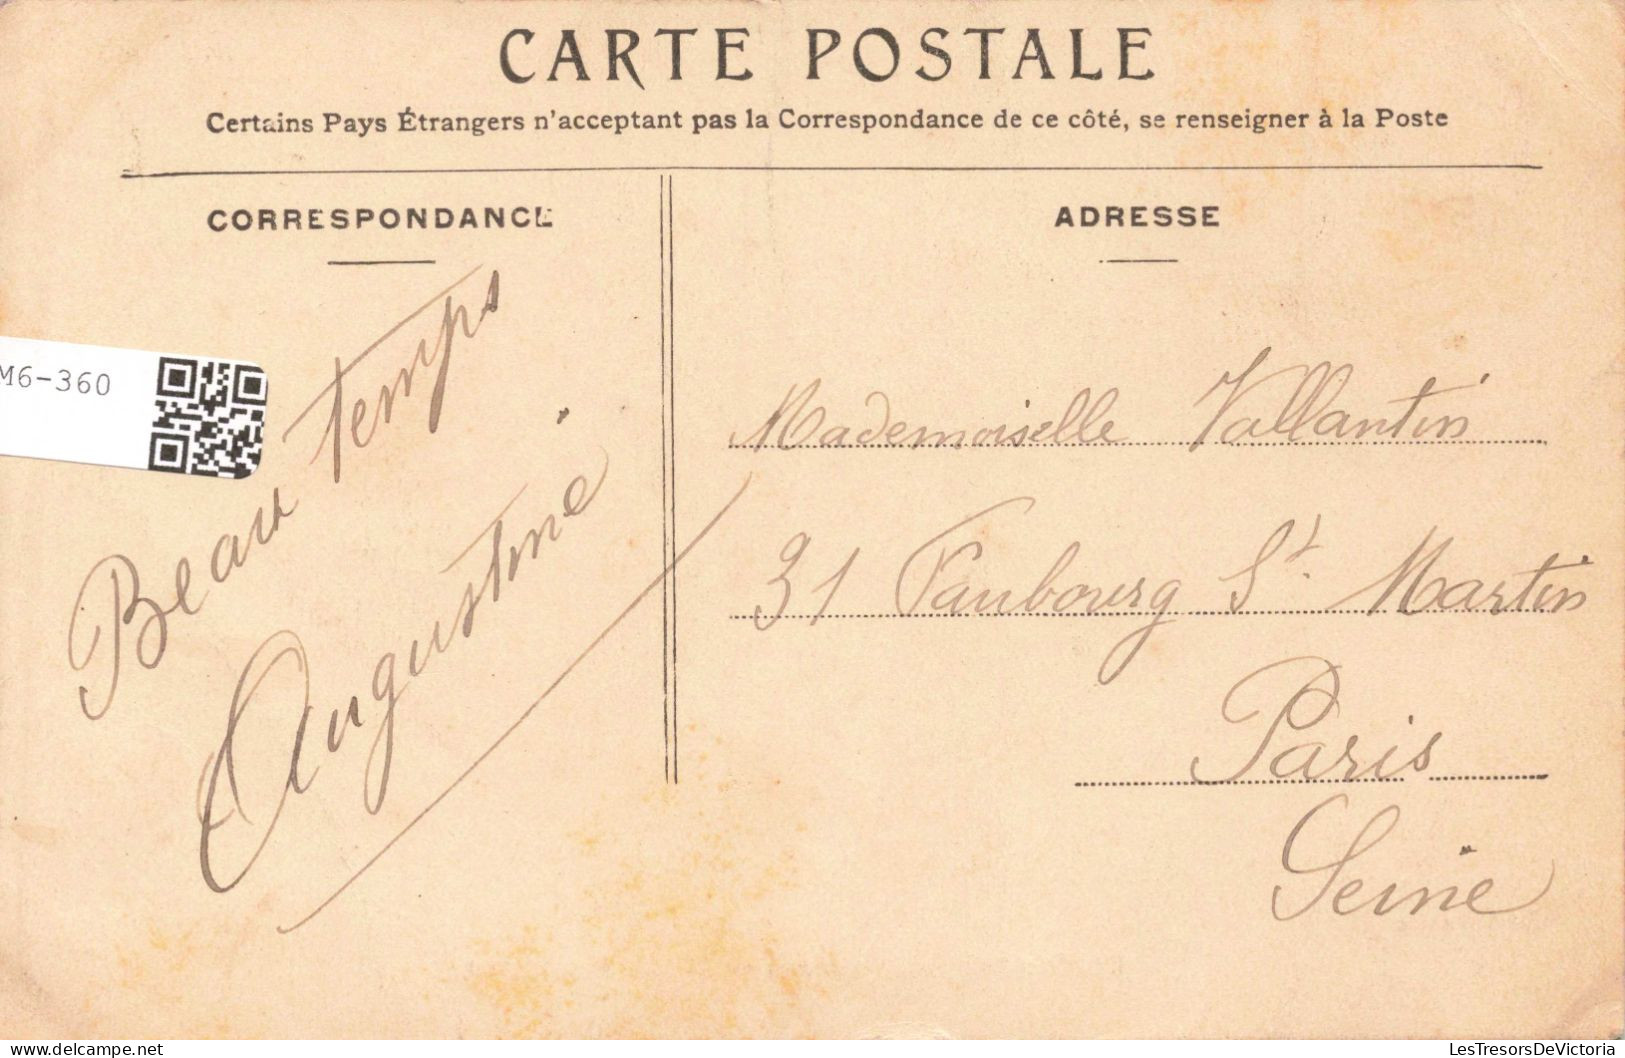 CARTE POSTALE
Certains Pays Étrangers n'acceptant pas la Correspondance de ce côté, se renseigner à la Poste
CORRESPONDANCE
Beau temps
Augustine
ADRESSE
Mademoiselle Vallantin
31 Faubourg St. Martin
Paris
Seine
M6-360
LesTresorsDeVictoria